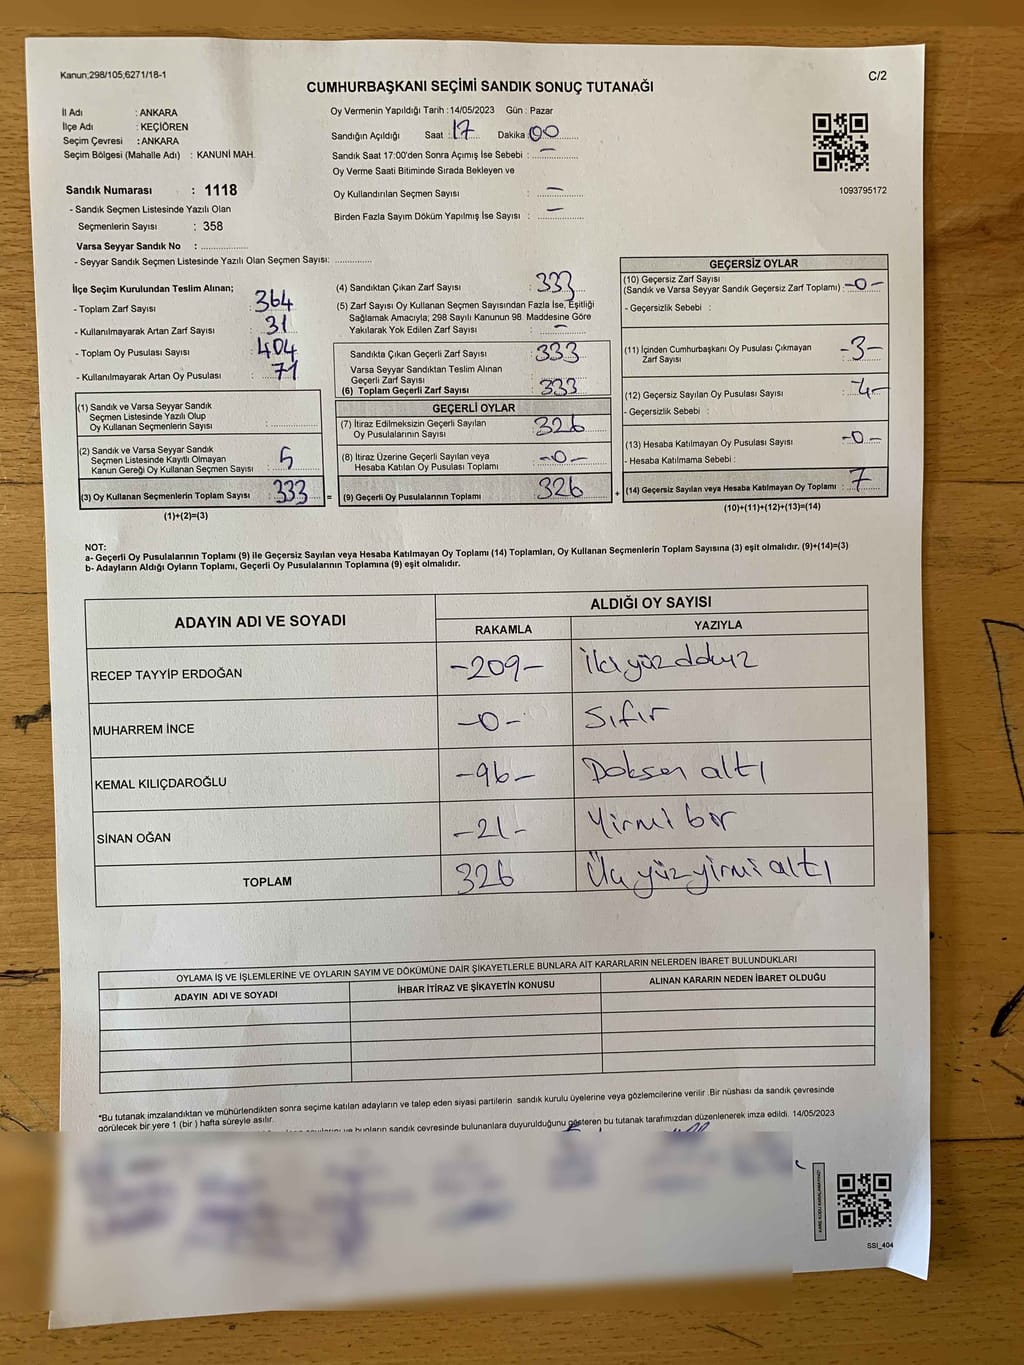 Kanun,298/105,6271/18-1
C/2
CUMHURBAŞKANI SEÇİMİ SANDIK SONUÇ TUTANAĞI
İl Adı : ANKARA
İlçe Adı : KEÇİÖREN
Seçim Çevresi : ANKARA
Seçim Bölgesi (Mahalle Adı) : KANUNİ MAH.
Oy Vermenin Yapıldığı Tarih : 14/05/2023 Gün : Pazar
Sandığın Açıldığı Saat : 17 Dakika 00
Sandık Saat 17:00'den Sonra Açımış İse Sebebi : —
Oy Verme Saati Bitiminde Sırada Bekleyen ve
Oy Kullandırılan Seçmen Sayısı : —
Birden Fazla Sayım Döküm Yapılmış İse Sayısı : —
1093795172
Sandık Numarası : 1118
- Sandık Seçmen Listesinde Yazılı Olan
Seçmenlerin Sayısı : 358
Varsa Seyyar Sandık No : ..............
- Seyyar Sandık Seçmen Listesinde Yazılı Olan Seçmen Sayısı: ..............
İlçe Seçim Kurulundan Teslim Alınan;
- Toplam Zarf Sayısı : 364
- Kullanılmayarak Artan Zarf Sayısı : 31
- Toplam Oy Pusulası Sayısı : 404
- Kullanılmayarak Artan Oy Pusulası : 71
(1) Sandık ve Varsa Seyyar Sandık
Seçmen Listesinde Yazılı Olup
Oy Kullanan Seçmenlerin Sayısı : ..............
(2) Sandık ve Varsa Seyyar Sandık
Seçmen Listesinde Kayıtlı Olmayan
Kanun Gereği Oy Kullanan Seçmen Sayısı : 5
(3) Oy Kullanan Seçmenlerin Toplam Sayısı : 333 =
(1)+(2)=(3)
(4) Sandıktan Çıkan Zarf Sayısı : 333
(5) Zarf Sayısı Oy Kullanan Seçmen Sayısından Fazla İse, Eşitliği
Sağlamak Amacıyla; 298 Sayılı Kanunun 98. Maddesine Göre
Yakılarak Yok Edilen Zarf Sayısı : —
Sandıkta Çıkan Geçerli Zarf Sayısı : 333
Varsa Seyyar Sandıktan Teslim Alınan
Geçerli Zarf Sayısı :
(6) Toplam Geçerli Zarf Sayısı : 333
GEÇERLİ OYLAR
(7) İtiraz Edilmeksizin Geçerli Sayılan
Oy Pusulalarının Sayısı : 326
(8) İtiraz Üzerine Geçerli Sayılan veya
Hesaba Katılan Oy Pusulası Toplamı : -0-
(9) Geçerli Oy Pusulalarının Toplamı : 326 +
GEÇERSİZ OYLAR
(10) Geçersiz Zarf Sayısı
(Sandık ve Varsa Seyyar Sandık Geçersiz Zarf Toplamı) : -0-
- Geçersizlik Sebebi :
(11) İçinden Cumhurbaşkanı Oy Pusulası Çıkmayan
Zarf Sayısı : -3-
(12) Geçersiz Sayılan Oy Pusulası Sayısı : -4-
- Geçersizlik Sebebi :
(13) Hesaba Katılmayan Oy Pusulası Sayısı : -0-
- Hesaba Katılmama Sebebi :
(14) Geçersiz Sayılan veya Hesaba Katılmayan Oy Toplamı : 7
(10)+(11)+(12)+(13)=(14)
NOT:
a- Geçerli Oy Pusulalarının Toplamı (9) ile Geçersiz Sayılan veya Hesaba Katılmayan Oy Toplamı (14) Toplamları, Oy Kullanan Seçmenlerin Toplam Sayısına (3) eşit olmalıdır. (9)+(14)=(3)
b- Adayların Aldığı Oyların Toplamı, Geçerli Oy Pusulalarının Toplamına (9) eşit olmalıdır.
ADAYIN ADI VE SOYADI
ALDIĞI OY SAYISI
RAKAMLA YAZIYLA
RECEP TAYYİP ERDOĞAN -209- İki yüz dokuz
MUHARREM İNCE -0- Sıfır
KEMAL KILIÇDAROĞLU -96- Doksan altı
SİNAN OĞAN -21- Yirmi bir
TOPLAM 326 Üç yüz yirmi altı
OYLAMA İŞ VE İŞLEMLERİNE VE OYLARIN SAYIM VE DÖKÜMÜNE DAİR ŞİKAYETLERLE BUNLARA AİT KARARLARIN NELERDEN İBARET BULUNDUKLARI
ADAYIN ADI VE SOYADI İHBAR İTİRAZ VE ŞİKAYETİN KONUSU ALINAN KARARIN NEDEN İBARET OLDUĞU
*Bu tutanak imzalandıktan ve mühürlendikten sonra seçime katılan adayların ve talep eden siyasi partilerin sandık kurulu üyelerine veya gözlemcilerine verilir .Bir nüshası da sandık çevresinde
görülecek bir yere 1 (bir ) hafta süreyle asılır.
ve bunların sandık çevresinde bulunanlara duyurulduğunu gösteren bu tutanak tarafımızdan düzenlenerek imza edildi. 14/05/2023
SSI_404